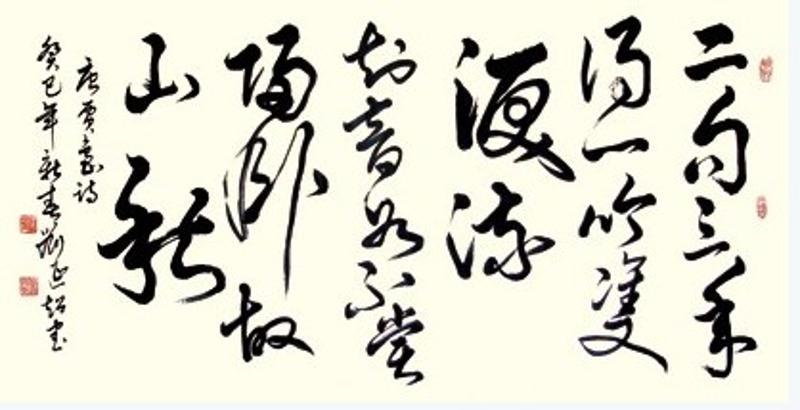 二句三年
得一吟雙
淚流
知音如不賞
歸卧故
山秋
唐賈島詩
癸巳年新春劉延超书